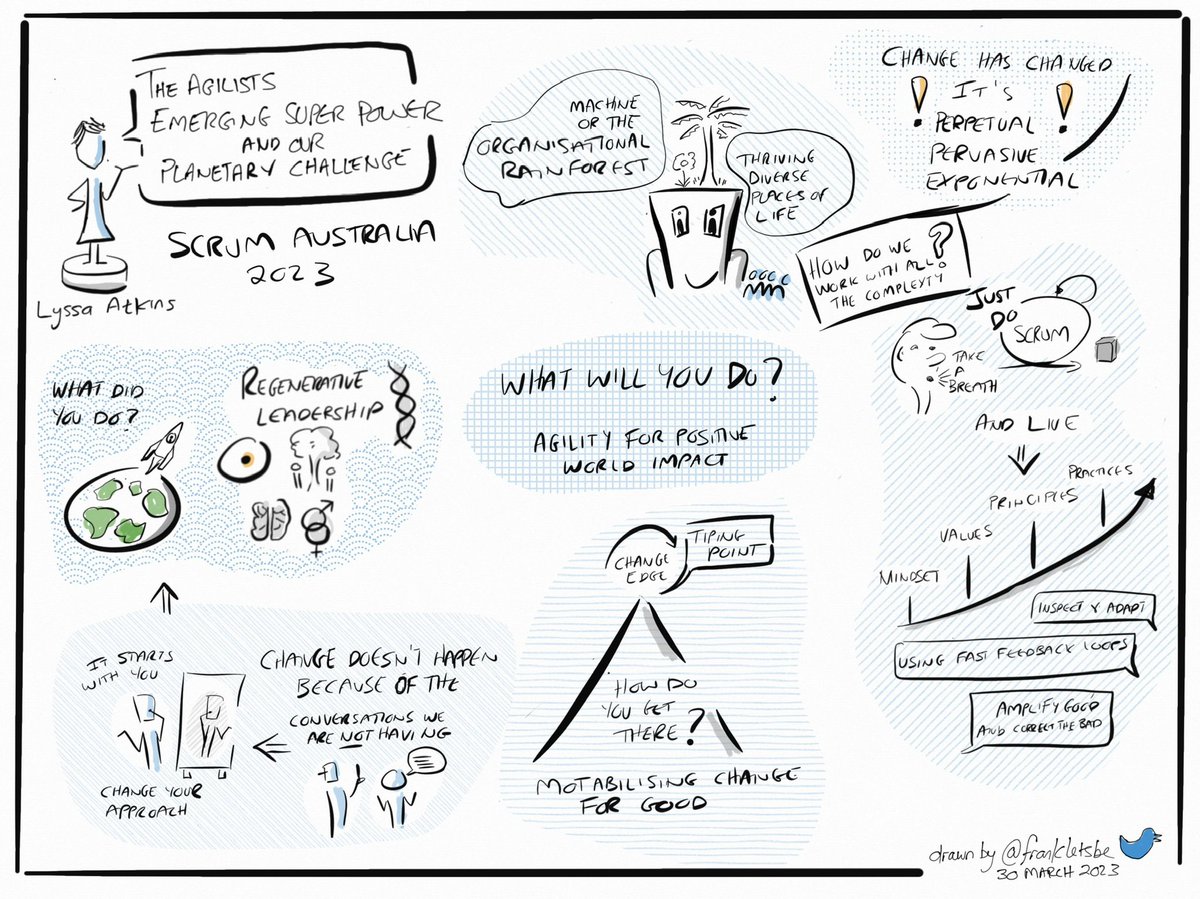 THE AGILISTS
EMERGING SUPER POWER
AND OUR
PLANETARY CHALLENGE
SCRUM AUSTRALIA
2023
Lyssa Atkins
MACHINE
OR THE
ORGANISATIONAL
RAINFOREST
THRIVING
DIVERSE
PLACES OF
LIFE
CHANGE HAS CHANGED
IT'S
PERPETUAL
PERVASIVE
EXPONENTIAL
HOW DO WE
WORK WITH ALL
THE COMPLEXTY
?
JUST
DO
SCRUM
TAKE
A
BREATH
AND LIVE
MINDSET
VALUES
PRINCIPLES
PRACTICES
INSPECT & ADAPT
USING FAST FEEDBACK LOOPS
AMPLIFY GOOD
AND CORRECT THE BAD
WHAT DID
YOU DO?
REGENERATIVE
LEADERSHIP
WHAT WILL YOU DO?
AGILITY FOR POSITIVE
WORLD IMPACT
IT STARTS
WITH YOU
CHANGE YOUR
APPROACH
CHANGE DOESN'T HAPPEN
BECAUSE OF THE
CONVERSATIONS WE
ARE NOT HAVING
CHANGE
EDGE
TIPING
POINT
HOW DO
YOU GET
THERE?
MOTABILISING CHANGE
FOR GOOD
drawn by @frankletsbe
30 MARCH 2023